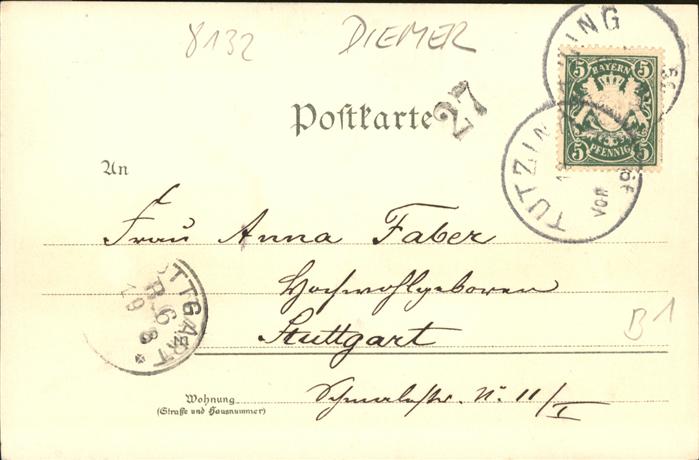 8132 DIEMER
Postkarte
27
BAYERN
5 5
5 5
PFENNIG
TUTZING
VOR
An
Frau Anna Faber
Hochwohlgeboren
Stuttgart
STUTTGART
B1
Wohnung
(Straße und Hausnummer)
No. 11/I